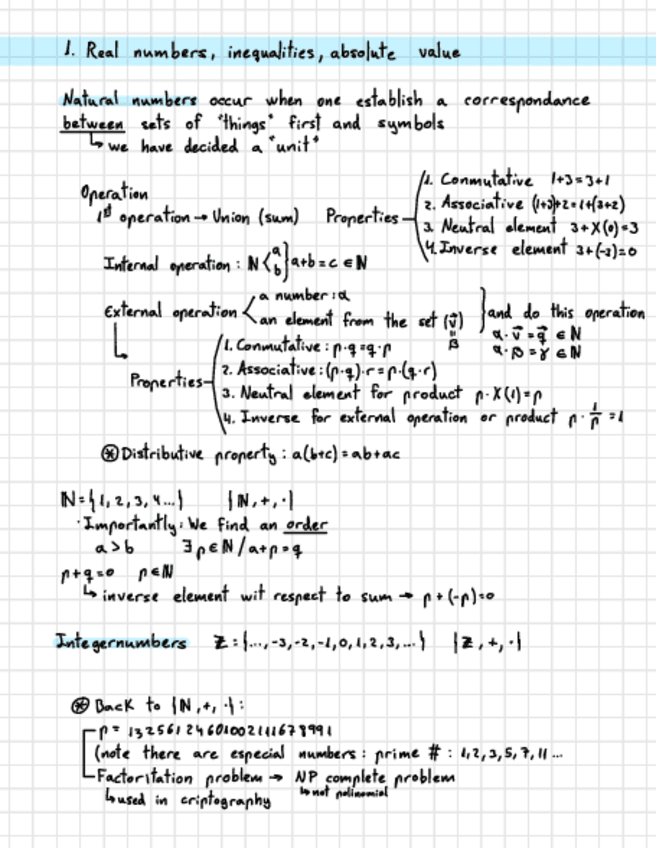 1. Real numbers, inequalities, absolute value
Natural numbers occur when one establish a correspondance
between sets of "things" first and symbols
↳ we have decided a "unit"
Operation
1st operation → Union (sum) Properties
1. Conmutative 1+3=3+1
2. Associative (1+3)+2=1+(3+2)
3. Neutral element 3+X(0)=3
4. Inverse element 3+(-3)=0
Internal operation : N < a b } a+b=c ∈ N
External operation < a number : α
an element from the set (v⃗) } and do this operation
β
α · v⃗ = q⃗ ∈ N
α · β = γ ∈ N
Properties
1. Conmutative : p·q=q·p
2. Associative : (p·q)·r=p·(q·r)
3. Neutral element for product p·X(1)=p
4. Inverse for external operation or product p · 1/p = 1
⊛ Distributive property : a(b+c)=ab+ac
N={1,2,3,4...} {N,+,·}
· Importantly: We find an order
a>b ∃ p∈N / a+p=q
p+q=0 p∈N
↳ inverse element wit respect to sum → p+(-p)=0
Integernumbers Z={...,-3,-2,-1,0,1,2,3,...} {Z,+,·}
⊛ Back to {N,+,·}:
p= 13256124601002111678991
(note there are especial numbers : prime # : 1,2,3,5,7,11...
Factoritation problem → NP complete problem
↳ not polinomial
↳ used in criptography